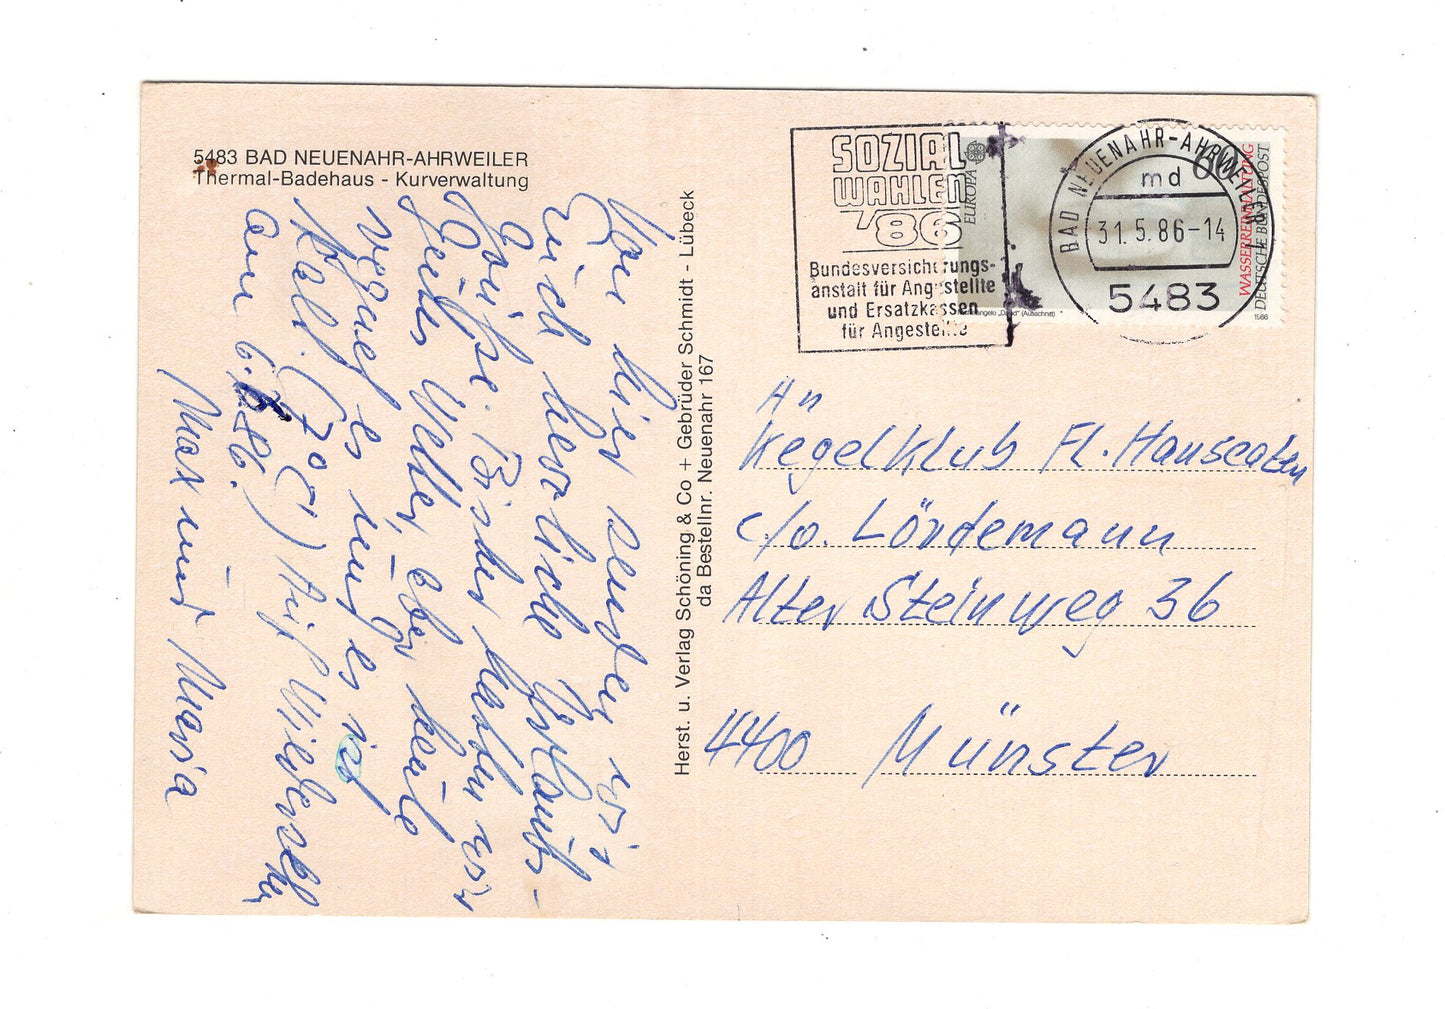 5483 BAD NEUENAHR-AHRWEILER
Thermal-Badehaus - Kurverwaltung
Von hier senden wir
Euch herrliche Urlaubs-
Grüße. Bisher hatten wir
gutes Wetter, aber heute
regnet es und es ist
kalt (7°C) Auf Wiedersehen
am 6.6.86.
Max und Maria
Herst. u. Verlag Schöning & Co + Gebrüder Schmidt - Lübeck
da Bestellnr. Neuenahr 167
SOZIAL
WAHLEN
'86
Bundesversicherungs-
anstalt für Angestellte
und Ersatzkassen
für Angestellte
EUROPA
60
WASSERREINHALTUNG
DEUTSCHE BUNDESPOST
1986
Michelangelo „David“ (Ausschnitt)
BAD NEUENAHR-AHRWEILER 1
md
31.5.86-14
5483
An
Kegelklub Fl. Hanseaten
c/o. Lördemann
Alter Steinweg 36
4400 Münster